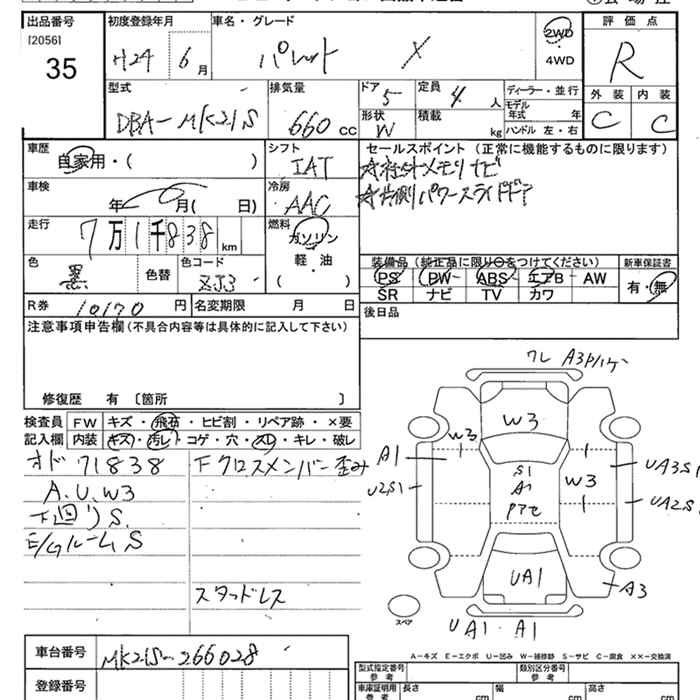 出品番号 初度登録年月 車名・グレード 評価点
[2056]
35 H24 6月 パレット X 2WD ・ 4WD R
型式 排気量 ドア 5 定員 4人 ディーラー・並行 外装 内装
DBA-MK21S 660cc 形状 W 積載 kg モデル年式 年 ハンドル 左・右 C C
車歴 シフト セールスポイント(正常に機能するものに限ります)
自家用・( ) IAT ☆社外メモリナビ
車検 年 月( 日) 冷房 AAC ☆片側パワースライドドア
走行 7万1千838km 燃料 ガソリン・軽油 ( )
色 黒 色替 色コード ZJ3
装備品(純正品に限り○をつけてください) 新車保証書
PS PW ABS エアB AW 有・無
SR ナビ TV カワ
R券 10170円 名変期限 月 日 後日品
注意事項申告欄(不具合内容等は具体的に記入して下さい)
修復歴 有 〔箇所 〕
検査員記入欄 FW キズ・飛石・ヒビ割・リペア跡・×要
内装 キズ・汚レ・コゲ・穴・スレ・キレ・破レ
オド 71838 Fクロスメンバー歪み
A.U.W3
下廻りS.
E/GルームS
スタッドレス
ワレ A3P/ハゲ
W3
W3
A1 S1 UA3S1
U2S1 A1 W3 UA2S1
UA1 A3
スペア
UA1・A1
A-キズ E-エクボ U-凹み W-補修跡 S-サビ C-腐食 ××-交換済
車台番号 MK21S-266028
登録番号
型式指定番号 参考 類別区分番号 参考
車庫証明用 参考 長さ cm 幅 cm 高さ cm